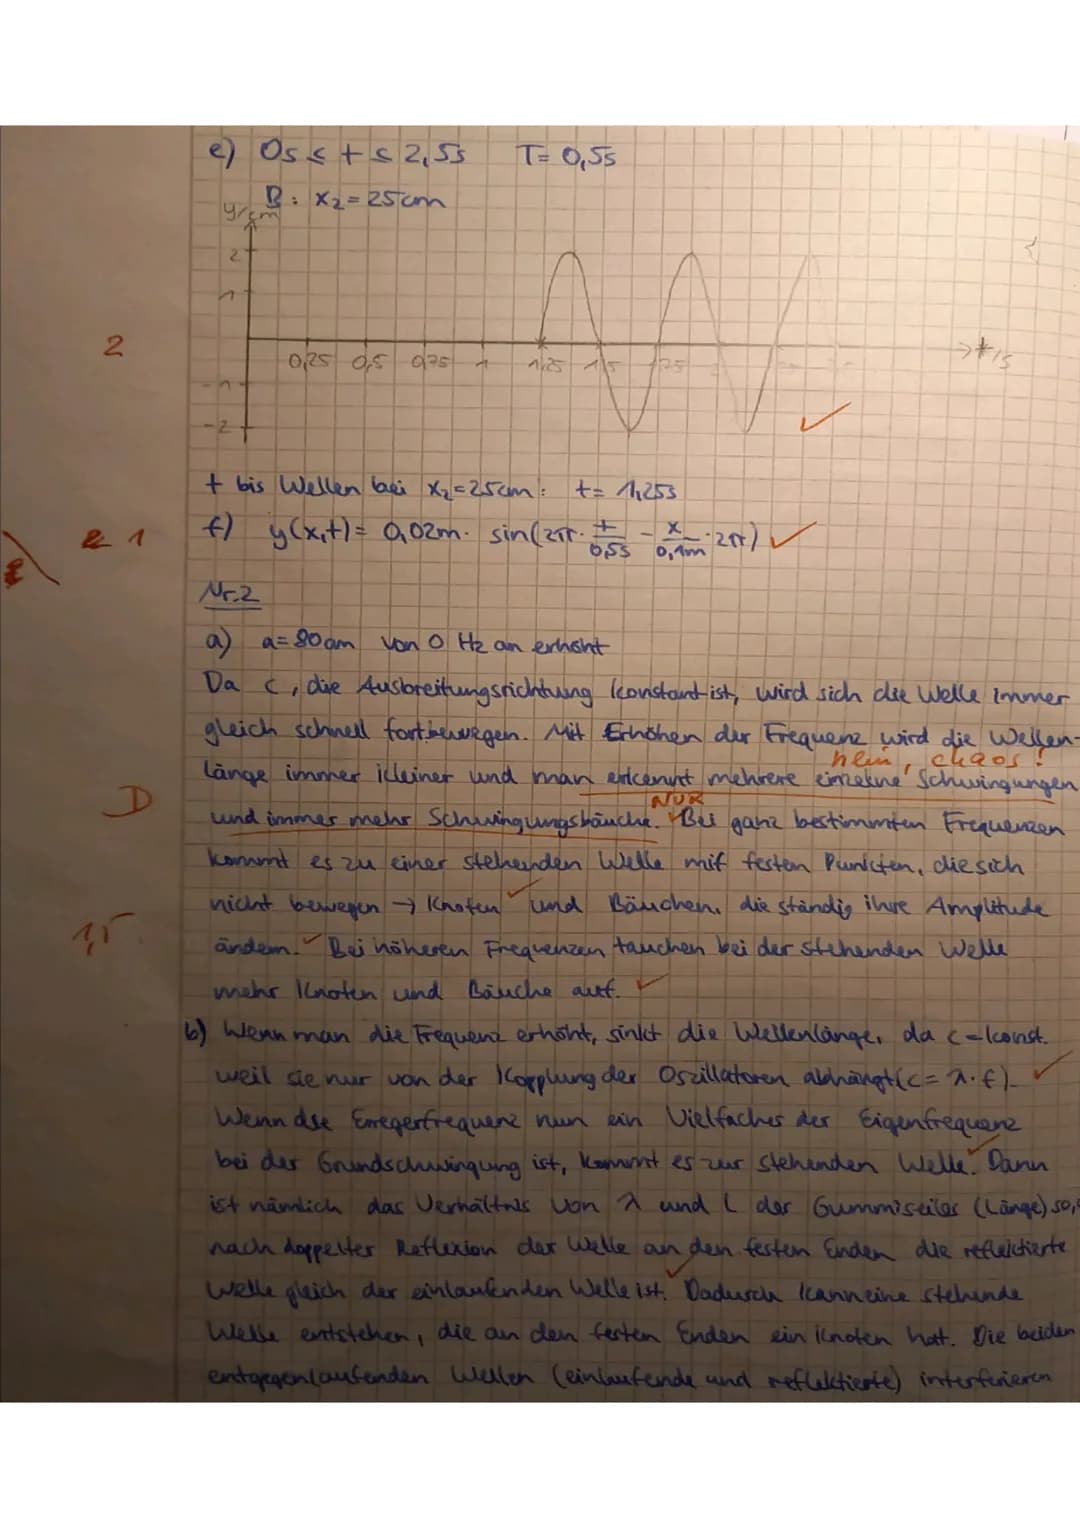 e) 0s ≤ t ≤ 2,5s T= 0,5s
B: x₂ = 25cm
y/cm
2
1
0,25 0,5 0,75 1 1,25 1,5 1,75
t/s
-1
2
-2
t bis Wellen bei x₂=25cm: t= 1,25s
f) y(x,t)= 0,02m · sin(2π · t/0,5s - x/0,1m · 2π)
2 1
Nr.2
a) a=80cm von 0 Hz an erhöht
Da c, die Ausbreitungsrichtung konstant ist, wird sich die Welle immer
gleich schnell fortbewegen. Mit Erhöhen der Frequenz wird die Wellen-
nein, chaos!
länge immer kleiner und man erkennt mehrere einzelne Schwingungen
D
NUR
und immer mehr Schwingungsbäuche. Bei ganz bestimmten Frequenzen
kommt es zu einer stehenden Welle mit festen Punkten, die sich
nicht bewegen → Knoten und Bäuchen, die ständig ihre Amplitude
1,5
ändern. Bei höheren Frequenzen tauchen bei der stehenden Welle
mehr Knoten und Bäuche auf.
b) Wenn man die Frequenz erhöht, sinkt die Wellenlänge, da c = konst.
weil sie nur von der Kopplung der Oszillatoren abhängt (c= λ·f).
Wenn die Erregerfrequenz nun ein Vielfaches der Eigenfrequenz
bei der Grundschwingung ist, kommt es zur stehenden Welle. Dann
ist nämlich das Verhältnis von λ und L des Gummiseiles (Länge) so,
nach doppelter Reflexion der Welle an den festen Enden die reflektierte
Welle gleich der einlaufenden Welle ist. Dadurch kann eine stehende
Welle entstehen, die an den festen Enden ein Knoten hat. Die beiden
entgegenlaufenden Wellen (einlaufende und reflektierte) interferieren